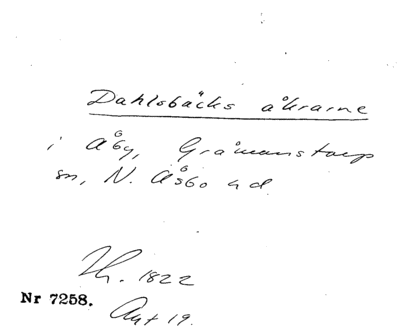 Dahlsbäcks åkrarne
i Åby, Gråmanstorp
sn, N. Åsbo hd.
Th. 1822
Nr 7258.
Akt 19.